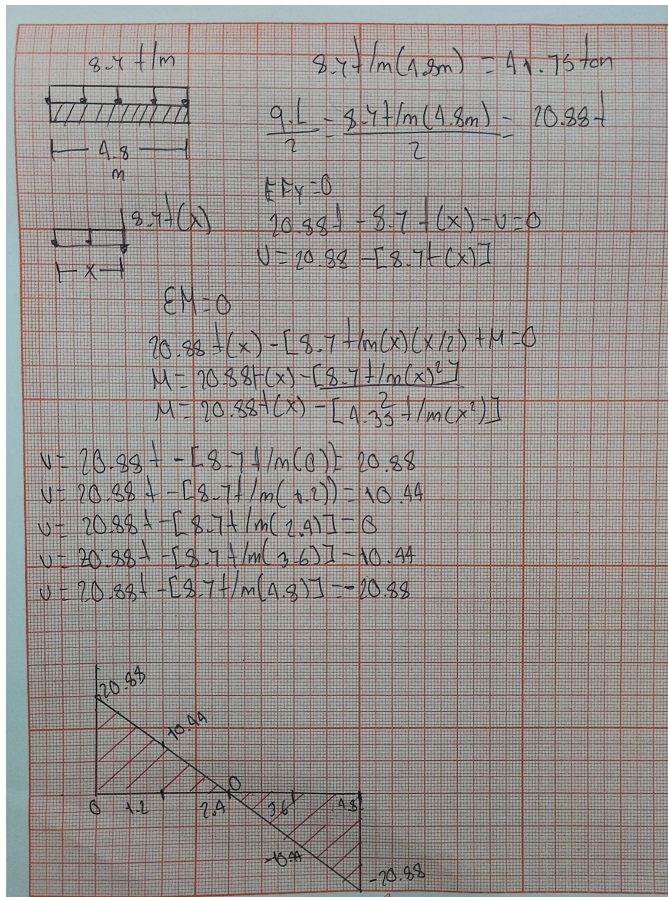 8.7 t/m
8.7t/m(4.8m) = 41.75ton
q.L/2 = 8.7t/m(4.8m)/2 = 20.88t
4.8
m
8.7t(x)
x
ΣFy=0
20.88t - 8.7 t(x) - v=0
V= 20.88 -[8.7t(x)]
ΣM=0
20.88t(x) -[8.7t/m(x)(x/2) +M=0
M= 20.88t(x) -[8.7t/m(x)²]/2
M= 20.88t(x) -[4.35t/m(x²)]
V= 20.88t -[8.7t/m(0)]= 20.88
V= 20.88t -[8.7t/m(1.2))=10.44
V= 20.88t -[8.7t/m(2.4)]=0
V= 20.88t -[8.7t/m(3.6)]-10.44
V= 20.88t -[8.7t/m(4.8)]=-20.88
20.88
10.44
0
0 1.2 2.4 3.6 4.8
-10.44
-20.88